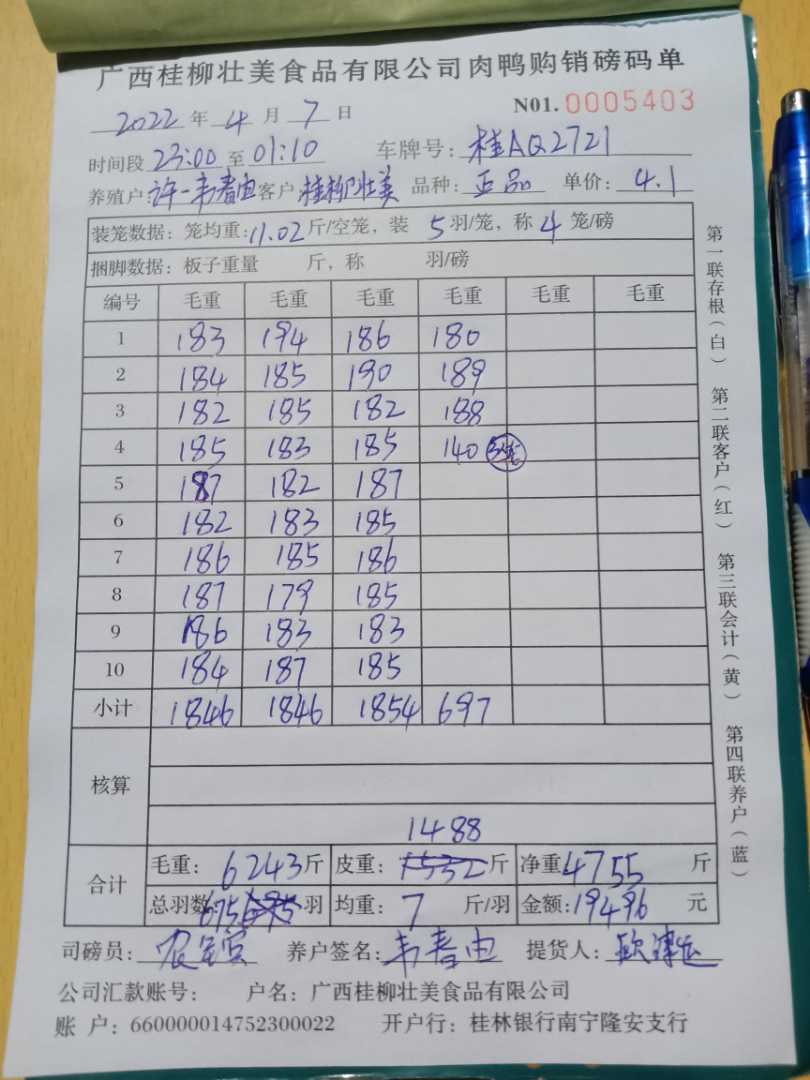 广西桂柳壮美食品有限公司肉鸭购销磅码单
2022年 4月 7日 N01. 0005403
时间段 23:00 至 01:10 车牌号: 桂AQ2721
养殖户: 许一韦春由 客户 桂柳壮美 品种: 正品 单价: 4.1
装笼数据: 笼均重: 11.02 斤/空笼, 装 5 羽/笼, 称 4 笼/磅
捆脚数据: 板子重量 斤, 称 羽/磅
编号 毛重 毛重 毛重 毛重 毛重 毛重
1 183 194 186 180
2 184 185 190 189
3 182 185 182 188
4 185 183 185 140 3笼
5 187 182 187
6 182 183 185
7 186 185 186
8 187 179 185
9 186 183 183
10 184 187 185
小计 1846 1846 1854 697
核算
1488
合计 毛重: 6243斤 皮重: 1532斤 净重 4755 斤
总羽数 675 羽 均重: 7 斤/羽 金额: 19496 元
司磅员: 养户签名: 韦春由 提货人:
公司汇款账号: 户名: 广西桂柳壮美食品有限公司
账 户: 660000014752300022 开户行: 桂林银行南宁隆安支行
第一联存根(白) 第二联客户(红) 第三联会计(黄) 第四联养户(蓝)